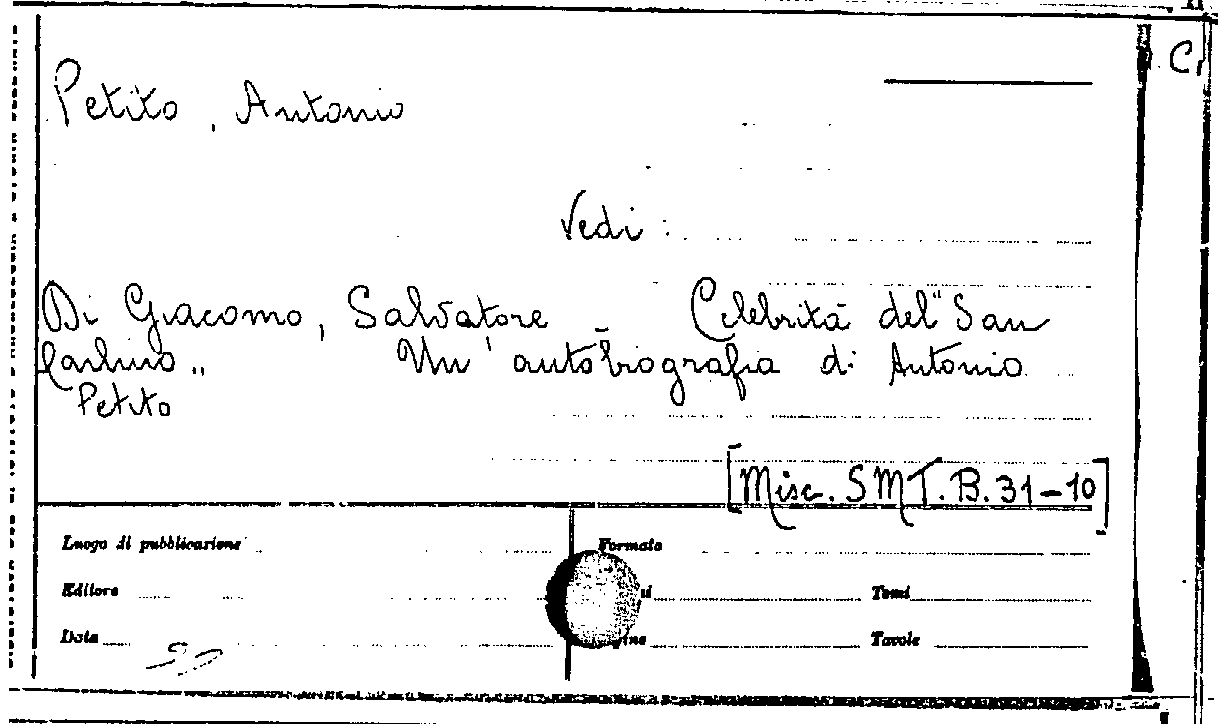 Petito, Antonio
Vedi :
Di Giacomo, Salvatore Celebrità del "San
Carlino„ Un' autobiografia di Antonio
Petito
[Misc. SMT. B. 31-10]
Luogo di pubblicazione Formato
Editore Tomi
Data Tavole